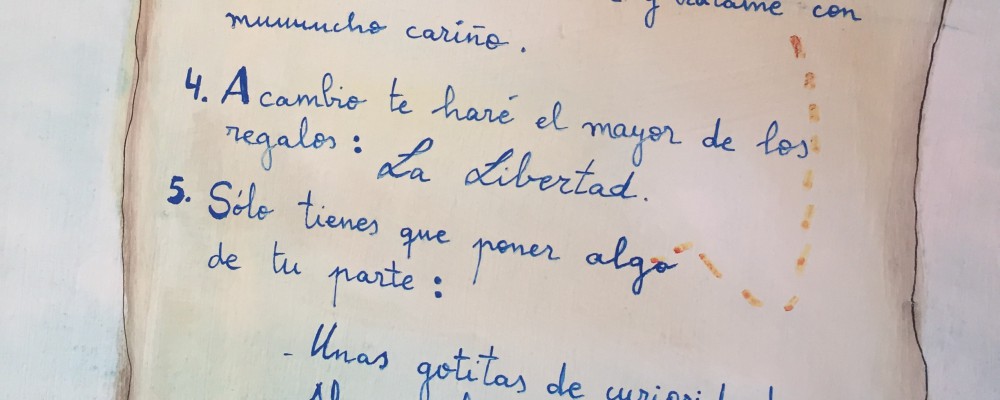 y trátame con
muuuucho cariño.
4. A cambio te haré el mayor de los
regalos: La Libertad.
5. Sólo tienes que poner algo
de tu parte:
- Unas gotitas de